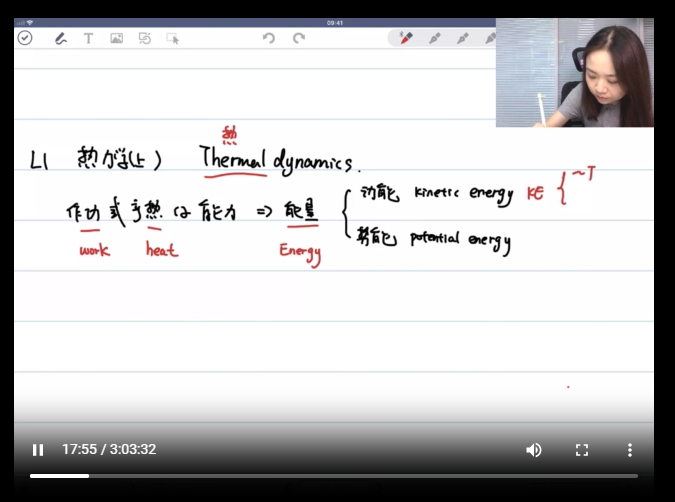 09:41
T
热
L1 热力学(上) Thermal dynamics.
作功或予热的能力 => 能量 { 动能 kinetic energy KE { ~T
势能 potential energy
work heat Energy
17:55 / 3:03:32